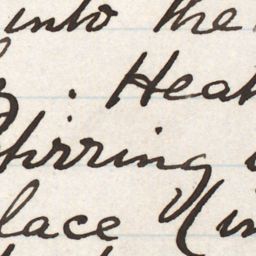 into the
. Heat
stirring
lace (in